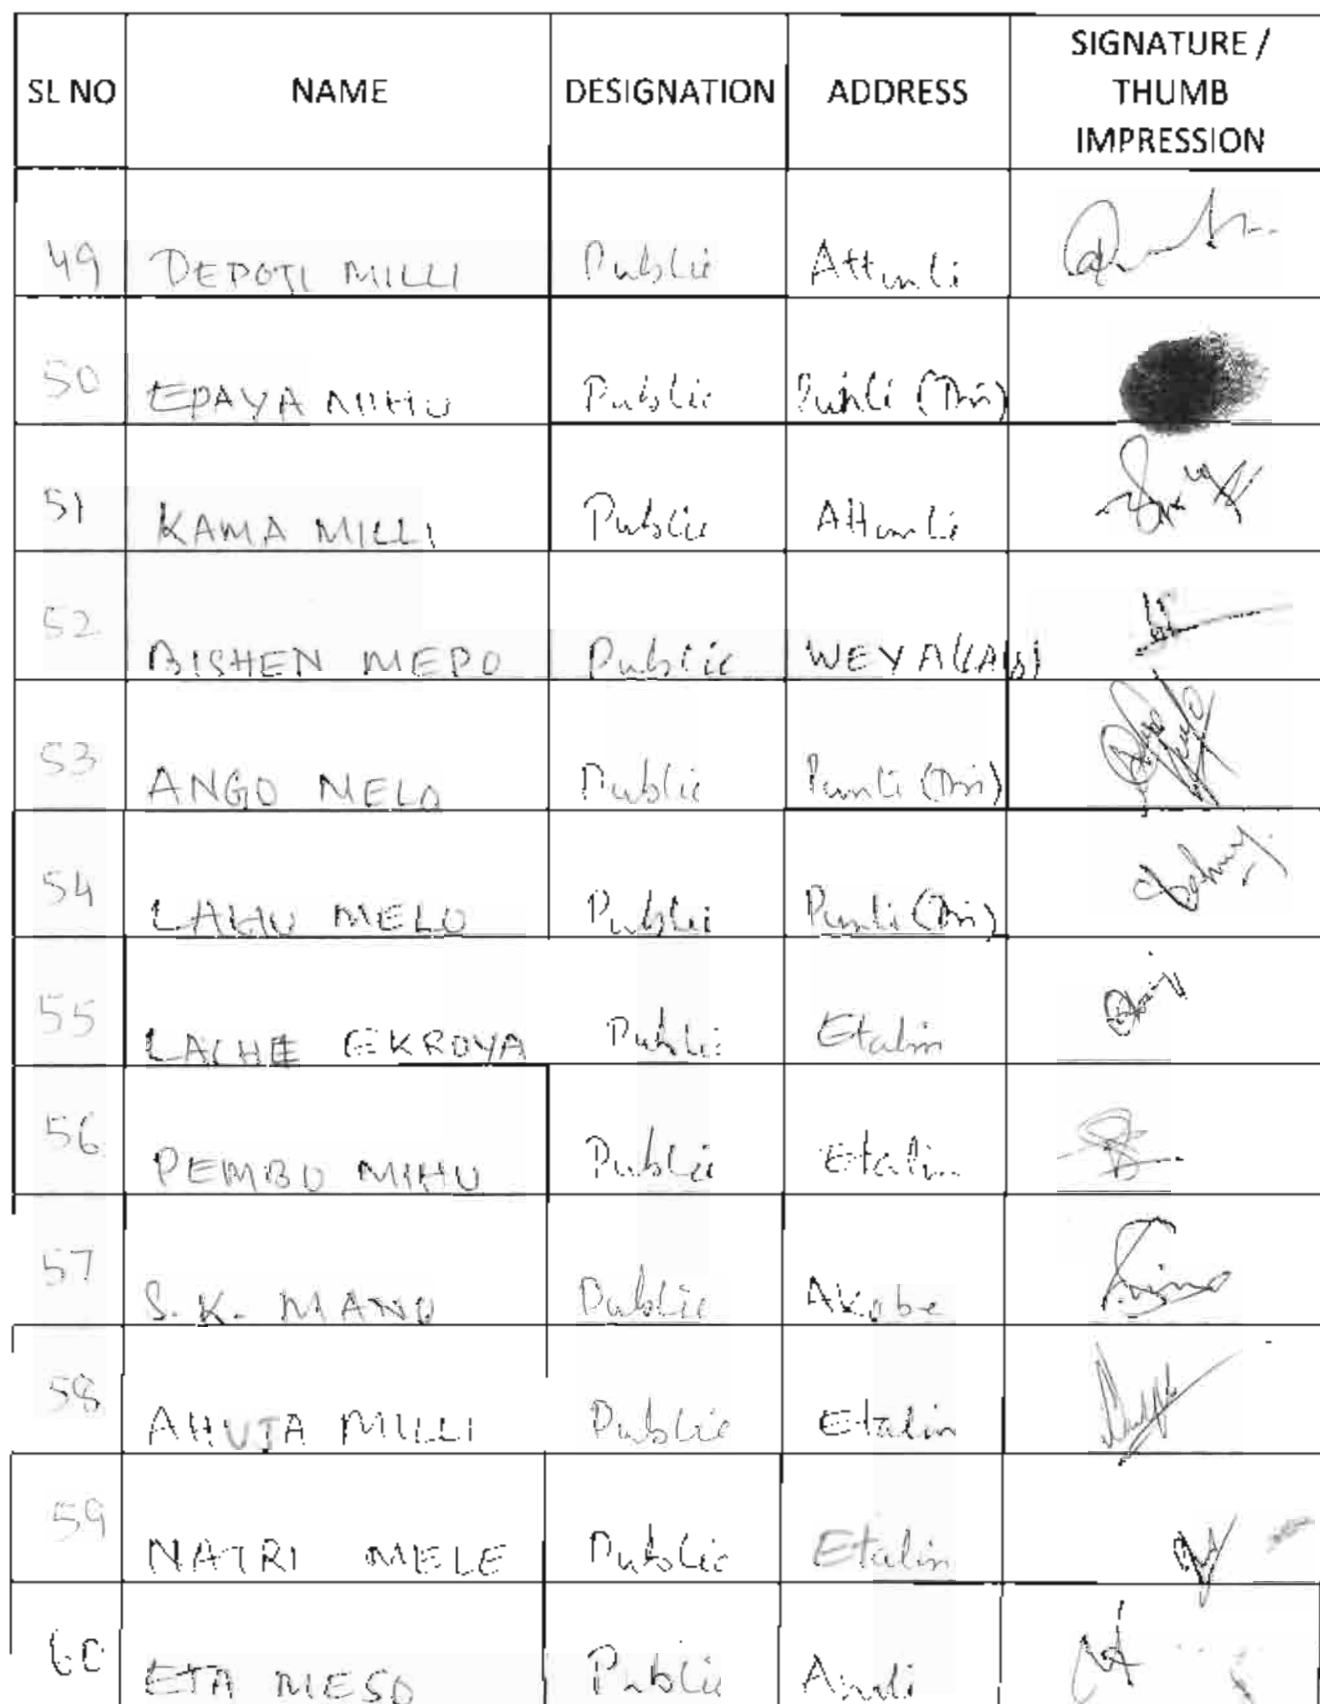 SL NO NAME DESIGNATION ADDRESS SIGNATURE / THUMB IMPRESSION
49 DEPOTI MILLI Public Attunli
50 EPAYA MIHU Public Punli (Dri)
51 KAMA MILLI Public Attunli
52 BISHEN MEPO Public
53 ANGO MELO Public Punli (Dri)
54 LAHU MELO Public Punli (Dri)
55 LACHE EKROYA Public Etalin
56 PEMBO MIHU Public Etalin
57 S. K. MANO Public Akobe
58 AHUJA MILLI Public Etalin
59 NATRI MELE Public Etalin
60 ETA MESO Public